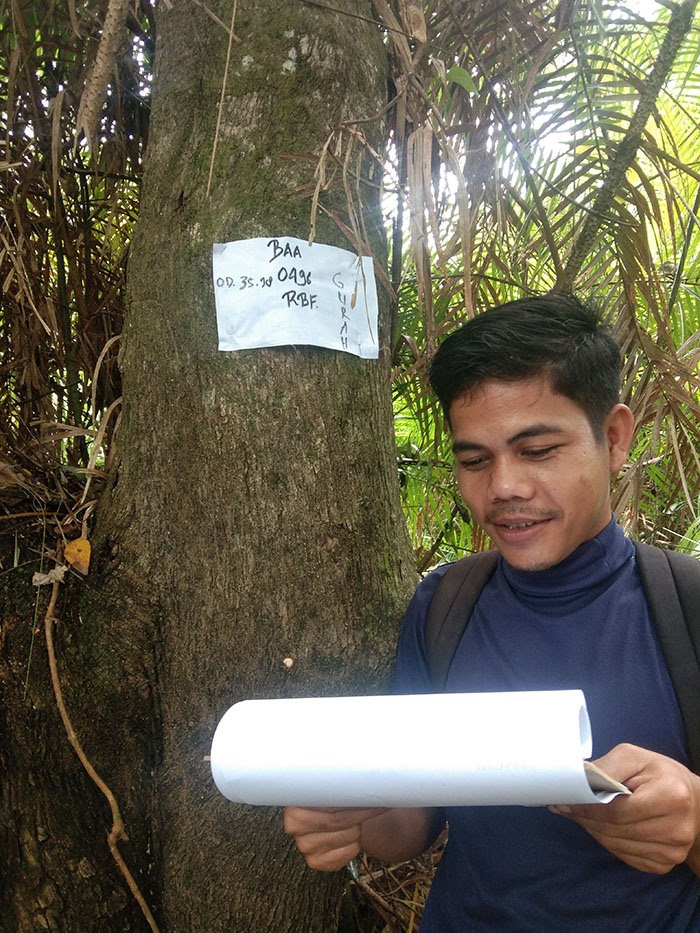 BAA
OD. 35.98 0496
RBF.
GURAH